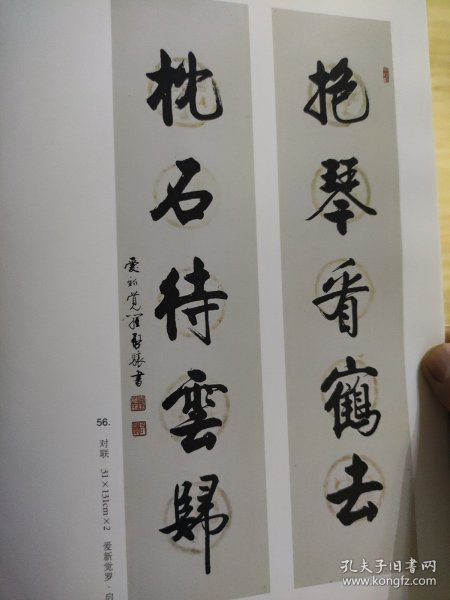 抱琴看鶴去
枕石待雲歸
爱新觉羅啟驤書
56.
对联 31×131cm×2 爱新觉罗·启
孔夫子旧书网
www.kongfz.com